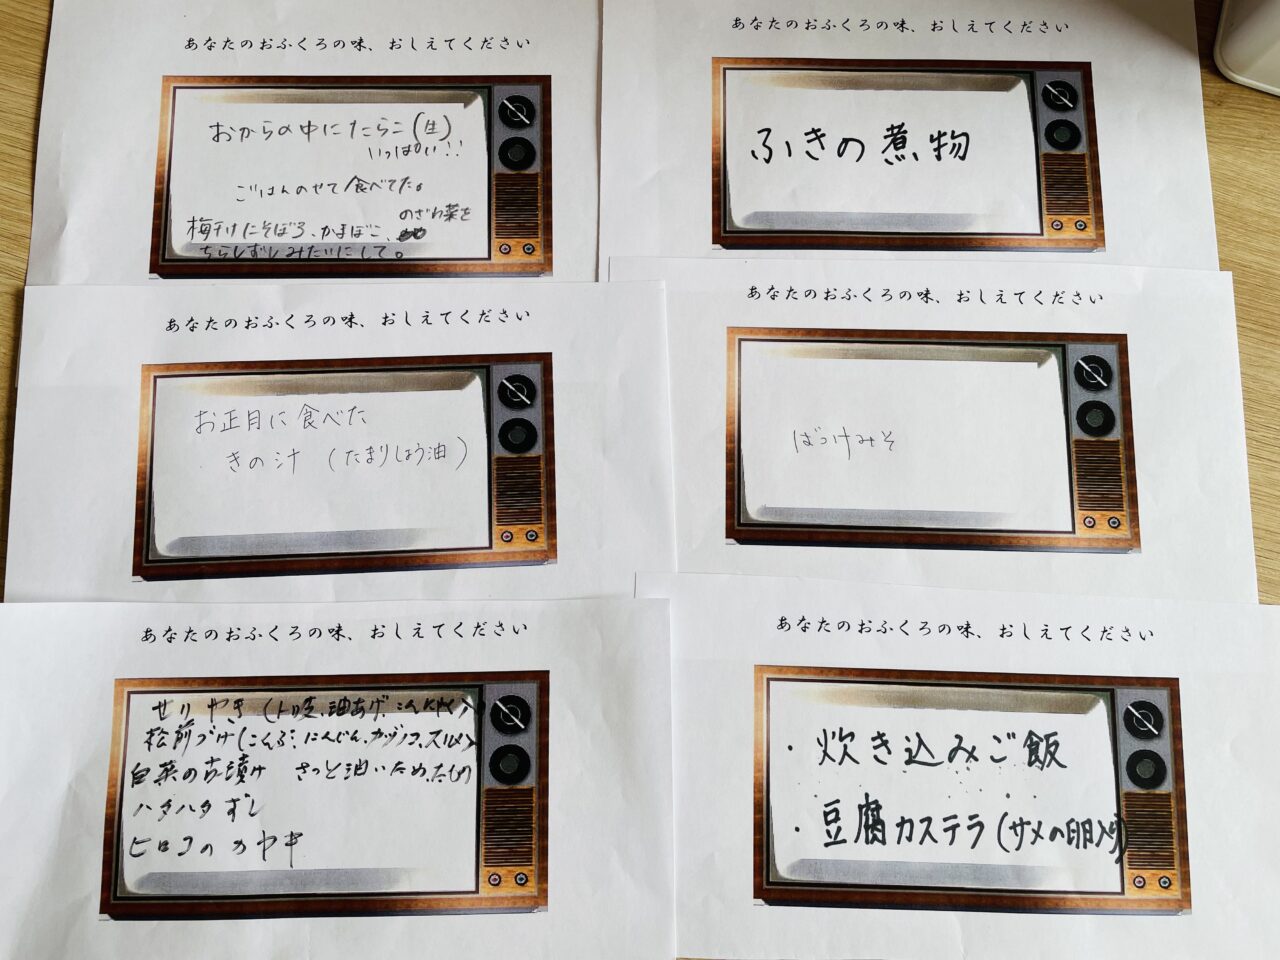 あなたのおふくろの味、おしえてください
おからの中にたらこ(生)
いっぱい!!
ごはんのせて食べてた。
梅干しにそぼろ、かまぼこ、のざわ菜を
ちらしずしみたいにして。
あなたのおふくろの味、おしえてください
ふきの煮物
あなたのおふくろの味、おしえてください
お正月に食べた
きの汁 (たまりしょう油)
あなたのおふくろの味、おしえてください
ばっけみそ
あなたのおふくろの味、おしえてください
せり やき (トリ肉、油あげ、こんにゃく)
松前づけ(こんぶ、にんじん、カヅノコ、スルメ)
白菜の古漬け さっと油いため、たもの
ハタハタずし
ヒロコのカヤキ
あなたのおふくろの味、おしえてください
・炊き込みご飯
・豆腐カステラ(サメの卵入り)